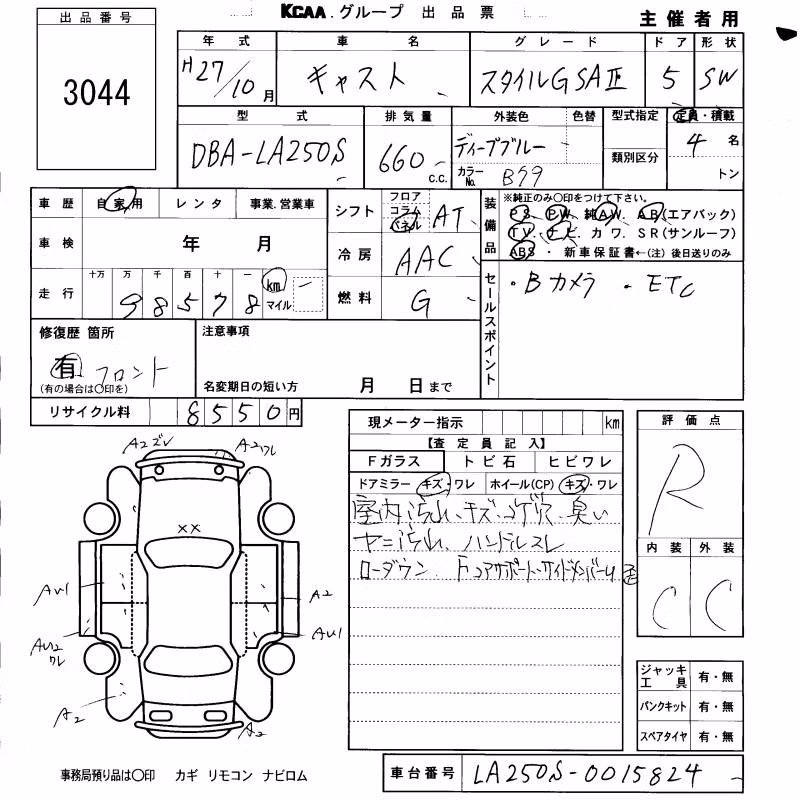 KCAA.グループ 出品票
主催者用
出品番号
3044
年式 車名 グレード ドア 形状
H27/10月 キャスト スタイルGSAⅡ 5 SW
型式 排気量 外装色 色替 型式指定 定員・積載
DBA-LA250S 660 c.c. ディープブルー カラーNo. B79 類別区分 4名 トン
車歴 自家用 レンタ 事業.営業車
車検 年 月
走行 十万 万 千 百 十 一
98578 km マイル
シフト フロア コラム パネル AT
冷房 AAC
燃料 G
装備品 ※純正のみ○印をつけて下さい。
PS. PW. 純AW. AB(エアバック)
TV. ナビ. カワ. SR(サンルーフ)
ABS・新車保証書←(注) 後日送りのみ
セールスポイント
・Bカメラ ・ETC
修復歴 箇所
有 フロント
(有の場合は○印を)
注意事項
名変期日の短い方 月 日まで
リサイクル料 8550円
現メーター指示 km
【査定員記入】
Fガラス トビ石 ヒビワレ
ドアミラー キズ・ワレ ホイール(CP) キズ・ワレ
室内汚れ、キズ、コゲ穴、臭い
ヤニ汚れ、ハンドルスレ
ローダウン Fコアサポート・サイドメンバーU
評価点
R
内装 外装
C C
ジャッキ工具 有・無
パンクキット 有・無
スペアタイヤ 有・無
A2ズレ A2ワレ
XX
AU1 A2
AU2ワレ AU1
A2 A2
事務局預り品は○印 カギ リモコン ナビロム
車台番号 LA250S-0015824